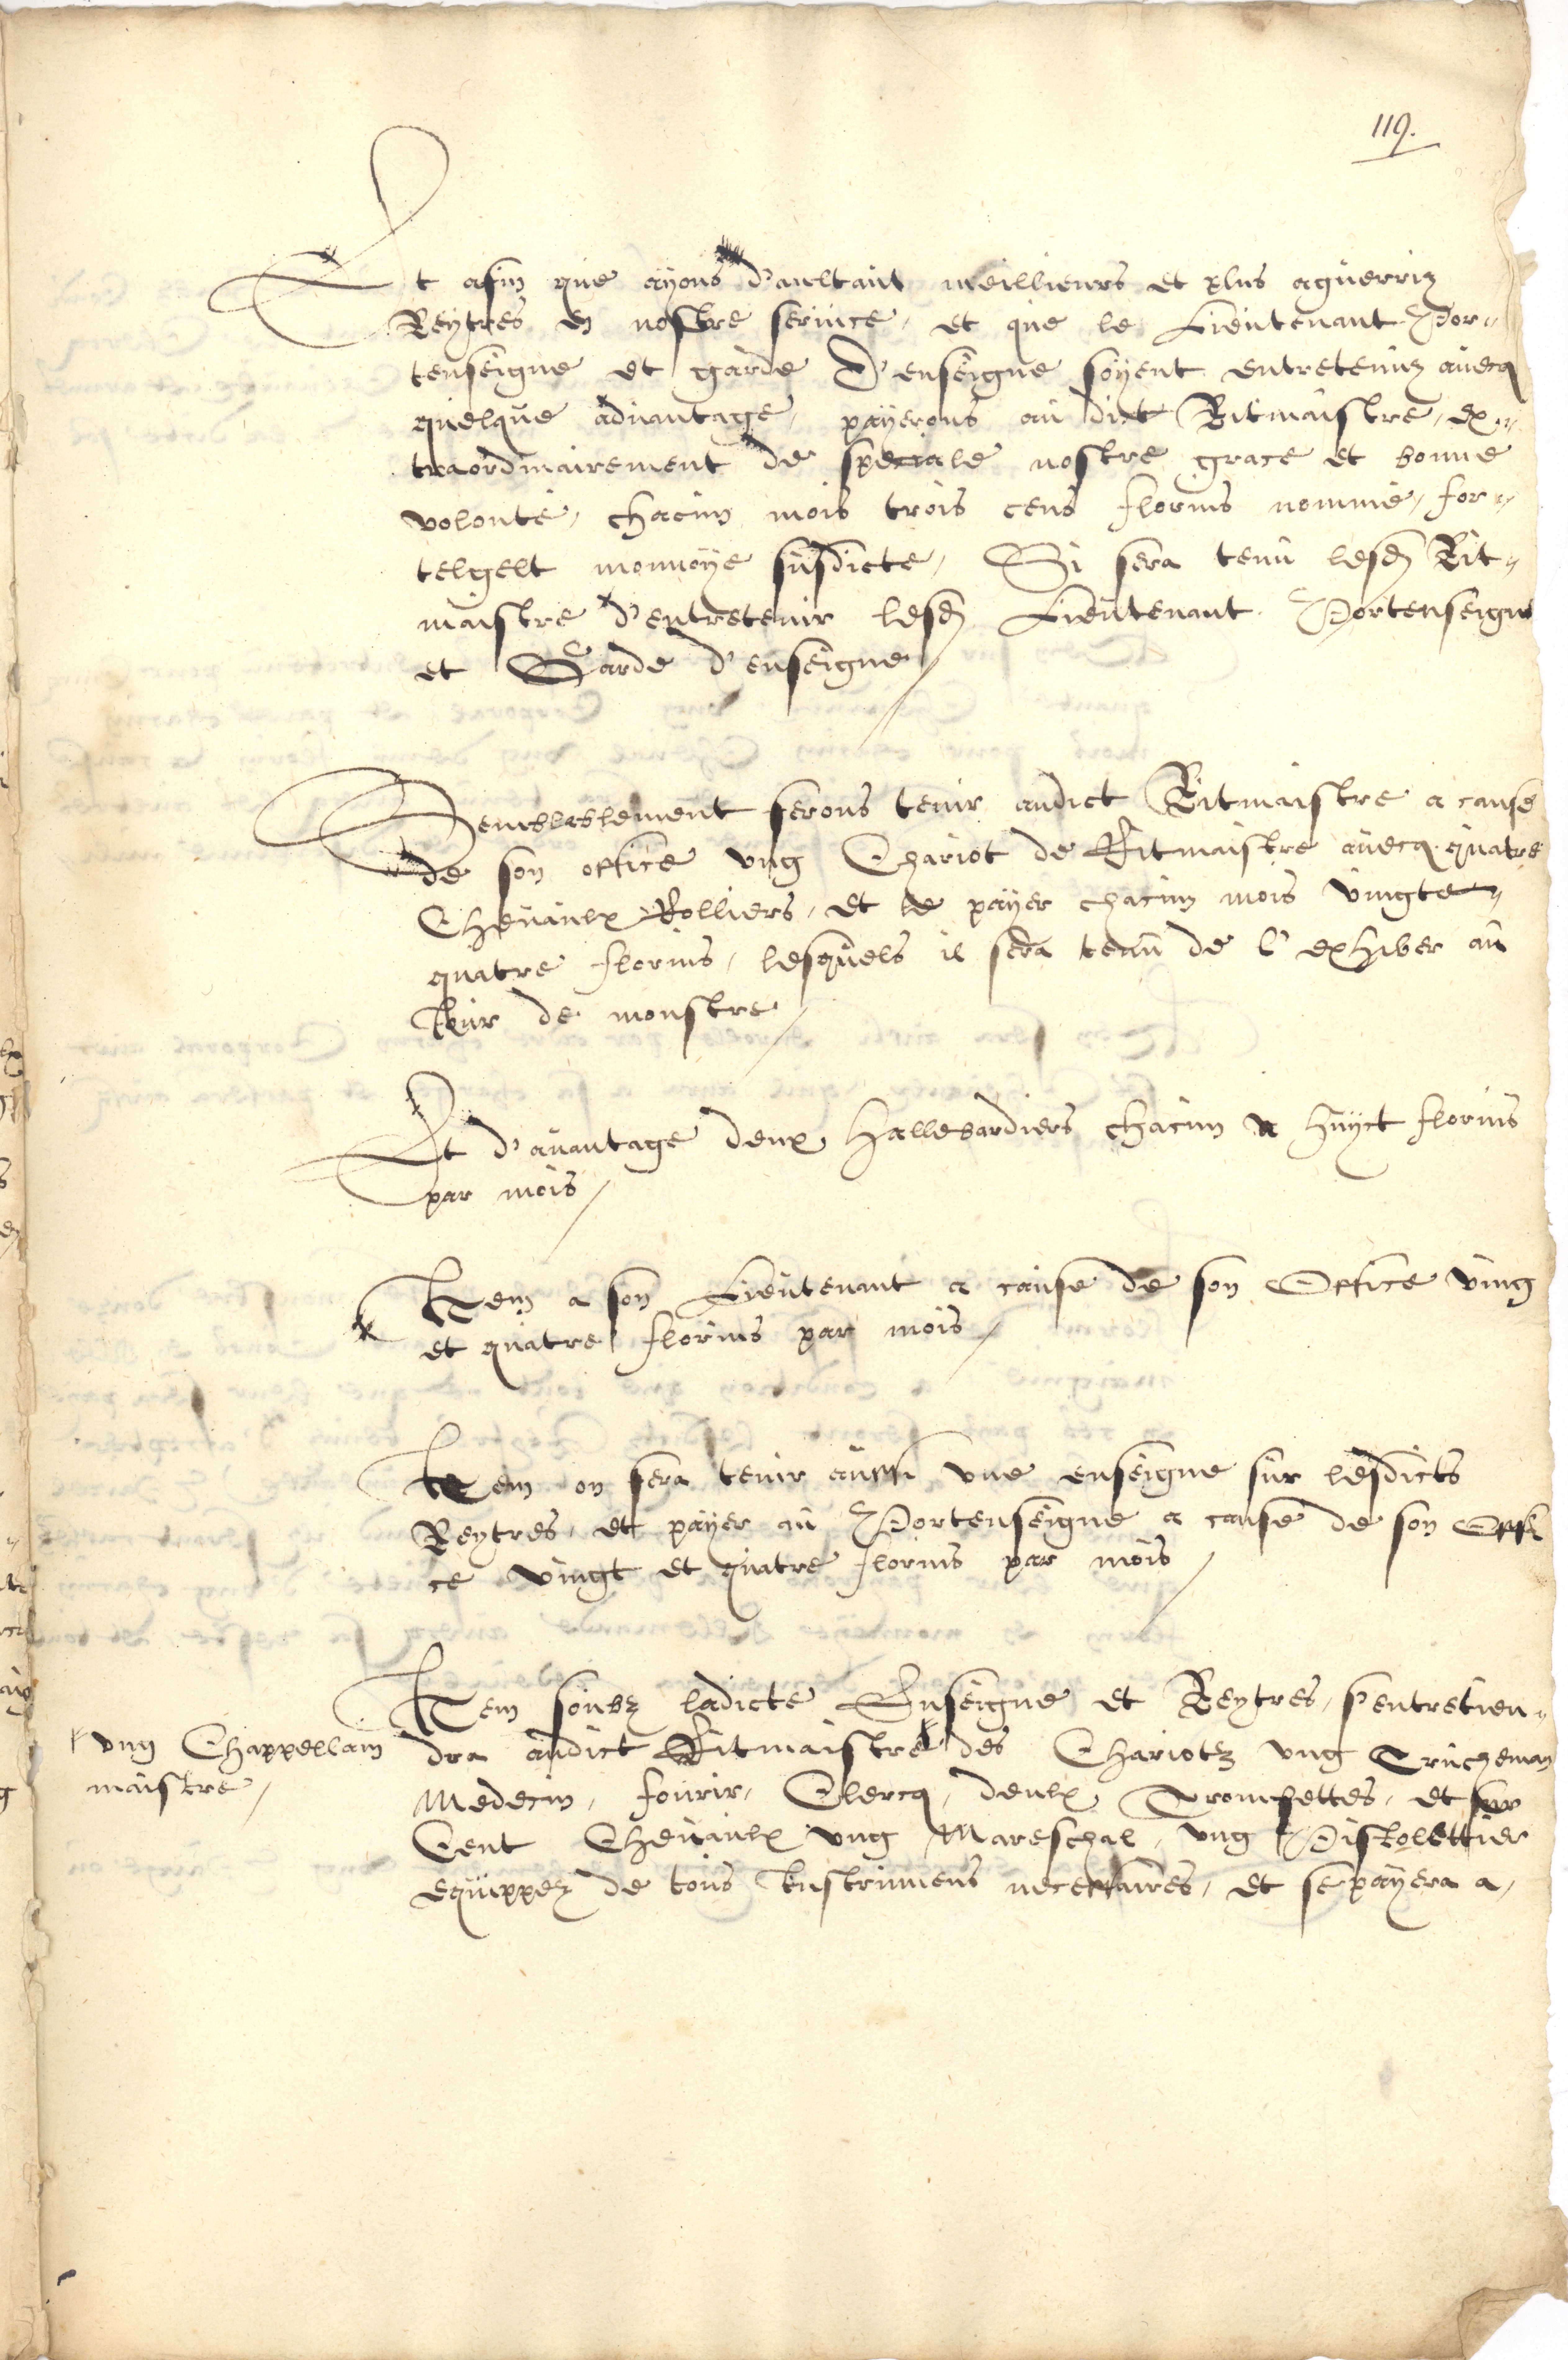 119.
Et afin que ayons d'aultant meillieurs et plus aguerriz
Reytres en nostre service, et que le Lieutenant Por-
tenseigne et garde D'enseigne soyent entretenuz avecq
quelque advantage, payerons au dict Ritmaistre, ex-
traordinairement de speciale nostre grace et bonne
volonté, chacun mois trois cens florins nommé, for-
telgelt monnoye susdicte, Si sera tenu lesd Rit-
maistre d'entretenir lesd Lieutenant Portenseigne
et Garde d'enseigne /
Semblablement ferons tenir audict Ritmaistre a cause
de son office ung Chariot de Ritmaistre avecq quatre
Chevaulx Rolliers, et le payer chacun mois vingte-
quatre florins, lesquels il sera tenu de l'exhiber au
Jour de monstre /
Et d'avantage deux Hallebardiers chacun a huyct florins
par mois /
Item a son Lieutenant a cause de son Office ving
et quatre florins par mois /
Item on fera tenir aussi une enseigne sur lesdicts
Reytres, et payer au Portenseigne a cause de son Offi
ce vingt et quatre florins par mois /
Item soubz ladicte Enseigne et Reytres, s'entretien-
dra audict Ritmaistre des Chariotz ung Trucheman
Medecin, fourir, Clercq, deulx Trompettes, et sur
Cent Chevaulx ung Mareschal, ung Pistolettier
equippez de tous Instrumens necessaires, et se payera a,
ung Chappellain
maistre /